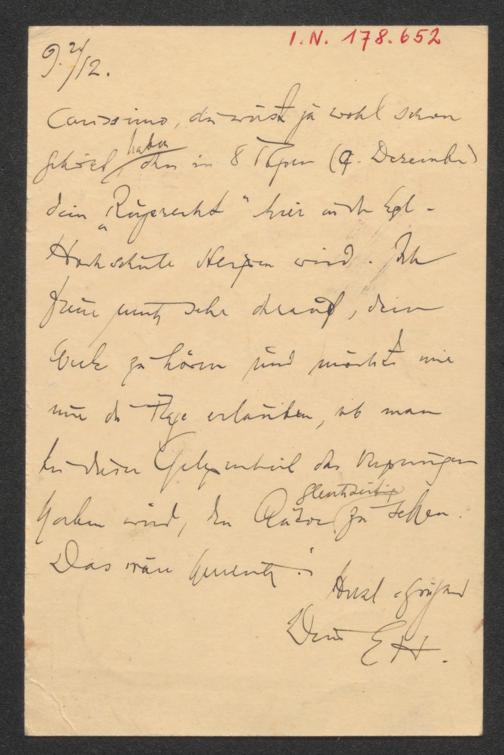 I.N. 178.652
Carissimo, du wirst ja wohl schon
gehört haben dass in 8 Tagen (9. Dezember)
dein „Ruprecht“ hier an der Kgl.
Hochschule steigen wird. Ich
freue mich sehr drauf, dein
Werk zu hören und möchte mir
nur die Frage erlauben, ob man
bei dieser Gelegenheit das Vergnügen
haben wird, den Autor gleichzeitig zu sehen.
Das wäre
Herzl. grüßend
Dein E H.